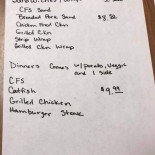 CFS Sand
Breaded Pork Sand $8.50
Chicken Fried Ckn
Grilled Ckn
Strip Wrap
Grilled Ckn Wrap
Dinners Comes w/potato, Veggie
and 1 side
CFS
Catfish $9.99
Grilled Chicken
Hamburger Steak